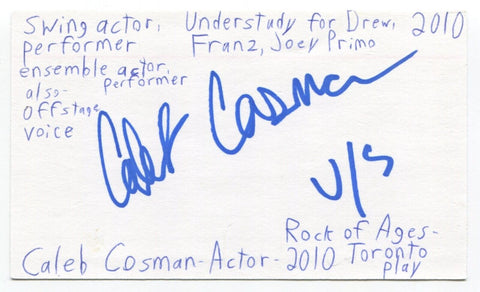 Swing actor,
performer
ensemble actor,
performer
also-
offstage
voice
Understudy for Drew, 2010
Franz, Joey Primo
Caleb Cosman
u/s
Rock of Ages-
Caleb Cosman-Actor-2010 Toronto
play